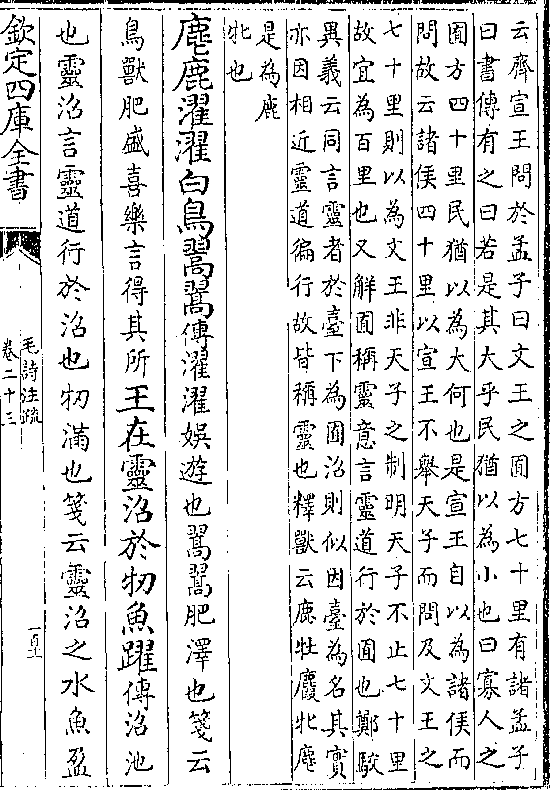 云齊宣王問於孟子曰文王之囿方七十里有諸孟子
曰書傳有之曰若是其大乎民猶以為小也曰寡人之
囿方四十里民猶以為大何也是宣王自以為諸侯而
問故云諸侯四十里以宣王不舉天子而問及文王之
七十里則以為文王非天子之制明天子不止七十里
故宜為百里也又解囿稱靈意言靈道行於囿也鄭駮
異義云同言靈者於臺下為囿沼則似因臺為名其實
亦因相近靈道徧行故皆稱靈也釋獸云鹿牡麚牝麀
是為鹿
牝也
麀鹿濯濯白鳥翯翯傳濯濯娛遊也翯翯肥澤也箋云
鳥獸肥盛喜樂言得其所王在靈沼於牣魚躍傳沼池
也靈沼言靈道行於沼也牣滿也箋云靈沼之水魚盈
欽定四庫全書
毛詩注疏
卷二十三